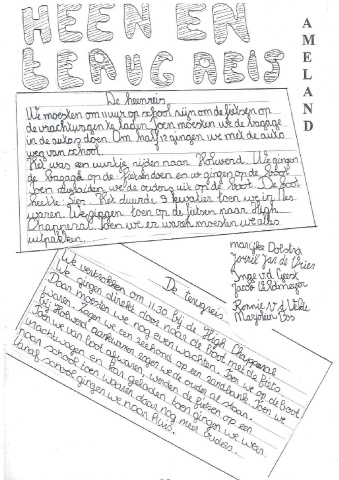 HEEN EN
TERUG REIS
AMELAND
De heenreis
We moesten om 11 uur op school zijn om de fietsen op
de vrachtwagen te laden. Toen moesten we de bagage
in de autos doen. Om half 12 gingen we met de auto
weg van school.
Het was een uurtje rijden naar Holwerd. We gingen
de bagage op de fietsen doen en we gingen op de boot
toen zwaaiden we de ouders uit op de boot. De boot
heette: Sier. Het duurde 3 kwartier toen we in Nes
waren. We gingen toen op de fietsen naar High
Chapperal. Toen we er waren moesten we alles
uitpakken.
Marijke Dolstra
Jan de Vries
Inge v.d. Geest
Jacob Veldmeyer
Ronnie v.d. Velde
Marjolein Bos
De terugreis
We vertrokken om 11.30 bij de High Chapperal
We gingen direkt door naar de boot met de fiets
Daar moesten we nog even wachten. Toen we op de boot
waren zagen we een zeehond op een zandbank. Toen we
bij Holwerd aankwamen zagen we de ouders al staan.
Toen we van boot af waren werden de fietsen op een
vrachtwagen en kar geladen toen gingen we weer
naar school toen waren daar nog meer ouders.
Vanaf school gingen we naar huis.